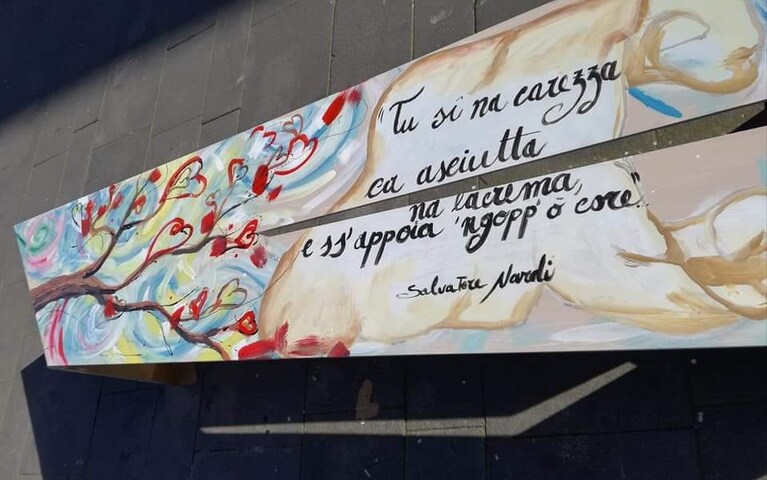 "Tu sì na carezza
ca asciutta
na lacrema,
e ss'appoia 'ngopp' ô core".
Salvatore Nardi